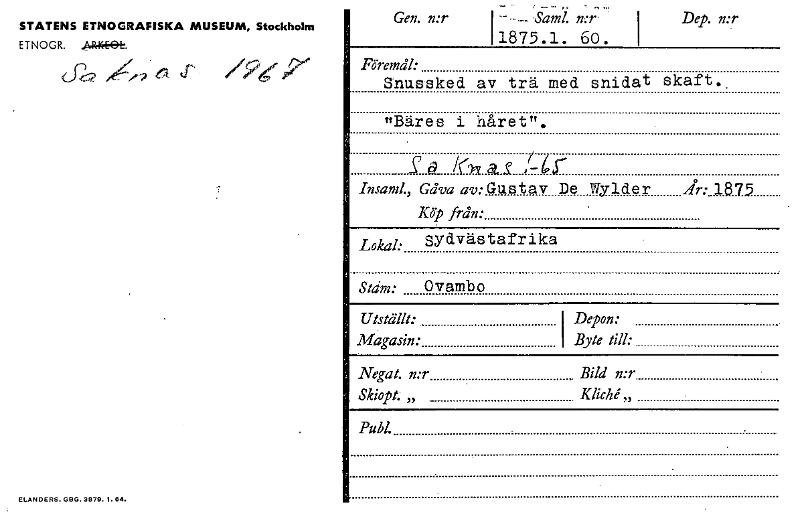 STATENS ETNOGRAFISKA MUSEUM, Stockholm
ETNOGR. ARKEOL.
Saknas 1967
Gen. n:r Saml. n:r Dep. n:r
1875.1. 60.
Föremål:
Snussked av trä med snidat skaft.
"Bäres i håret".
Saknas!-65
Insaml., Gåva av: Gustav De Wylder År: 1875
Köp från:
Lokal: Sydvästafrika
Stam: Ovambo
Utställt: Depon:
Magasin: Byte till:
Negat. n:r Bild n:r
Skiopt. „ Kliché „
Publ.
ELANDERS. GBG. 3879. 1. 64.